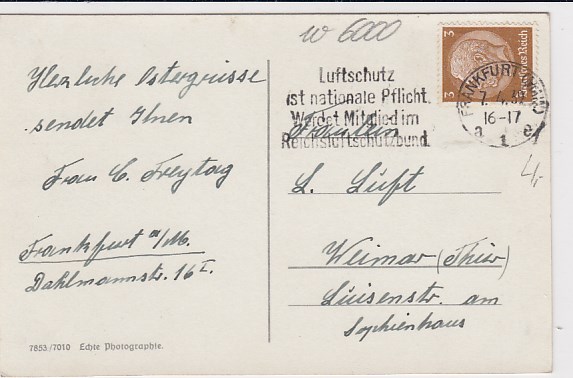 w 6000
3 3
Deutsches Reich
Luftschutz
ist nationale Pflicht.
Werdet Mitglied im
Reichsluftschutzbund.
FRANKFURT (MAIN)
16-17
a 1 e
Herzliche Ostergrüsse
sendet Ihnen
Frau C. Freytag
Frankfurt a/M.
Dahlmannstr. 16 I.
7853/7010 Echte Photographie.
Fräulein
L. Lüft
Weimar (Thür)
Luisenstr. am
Sophienhaus
4,-